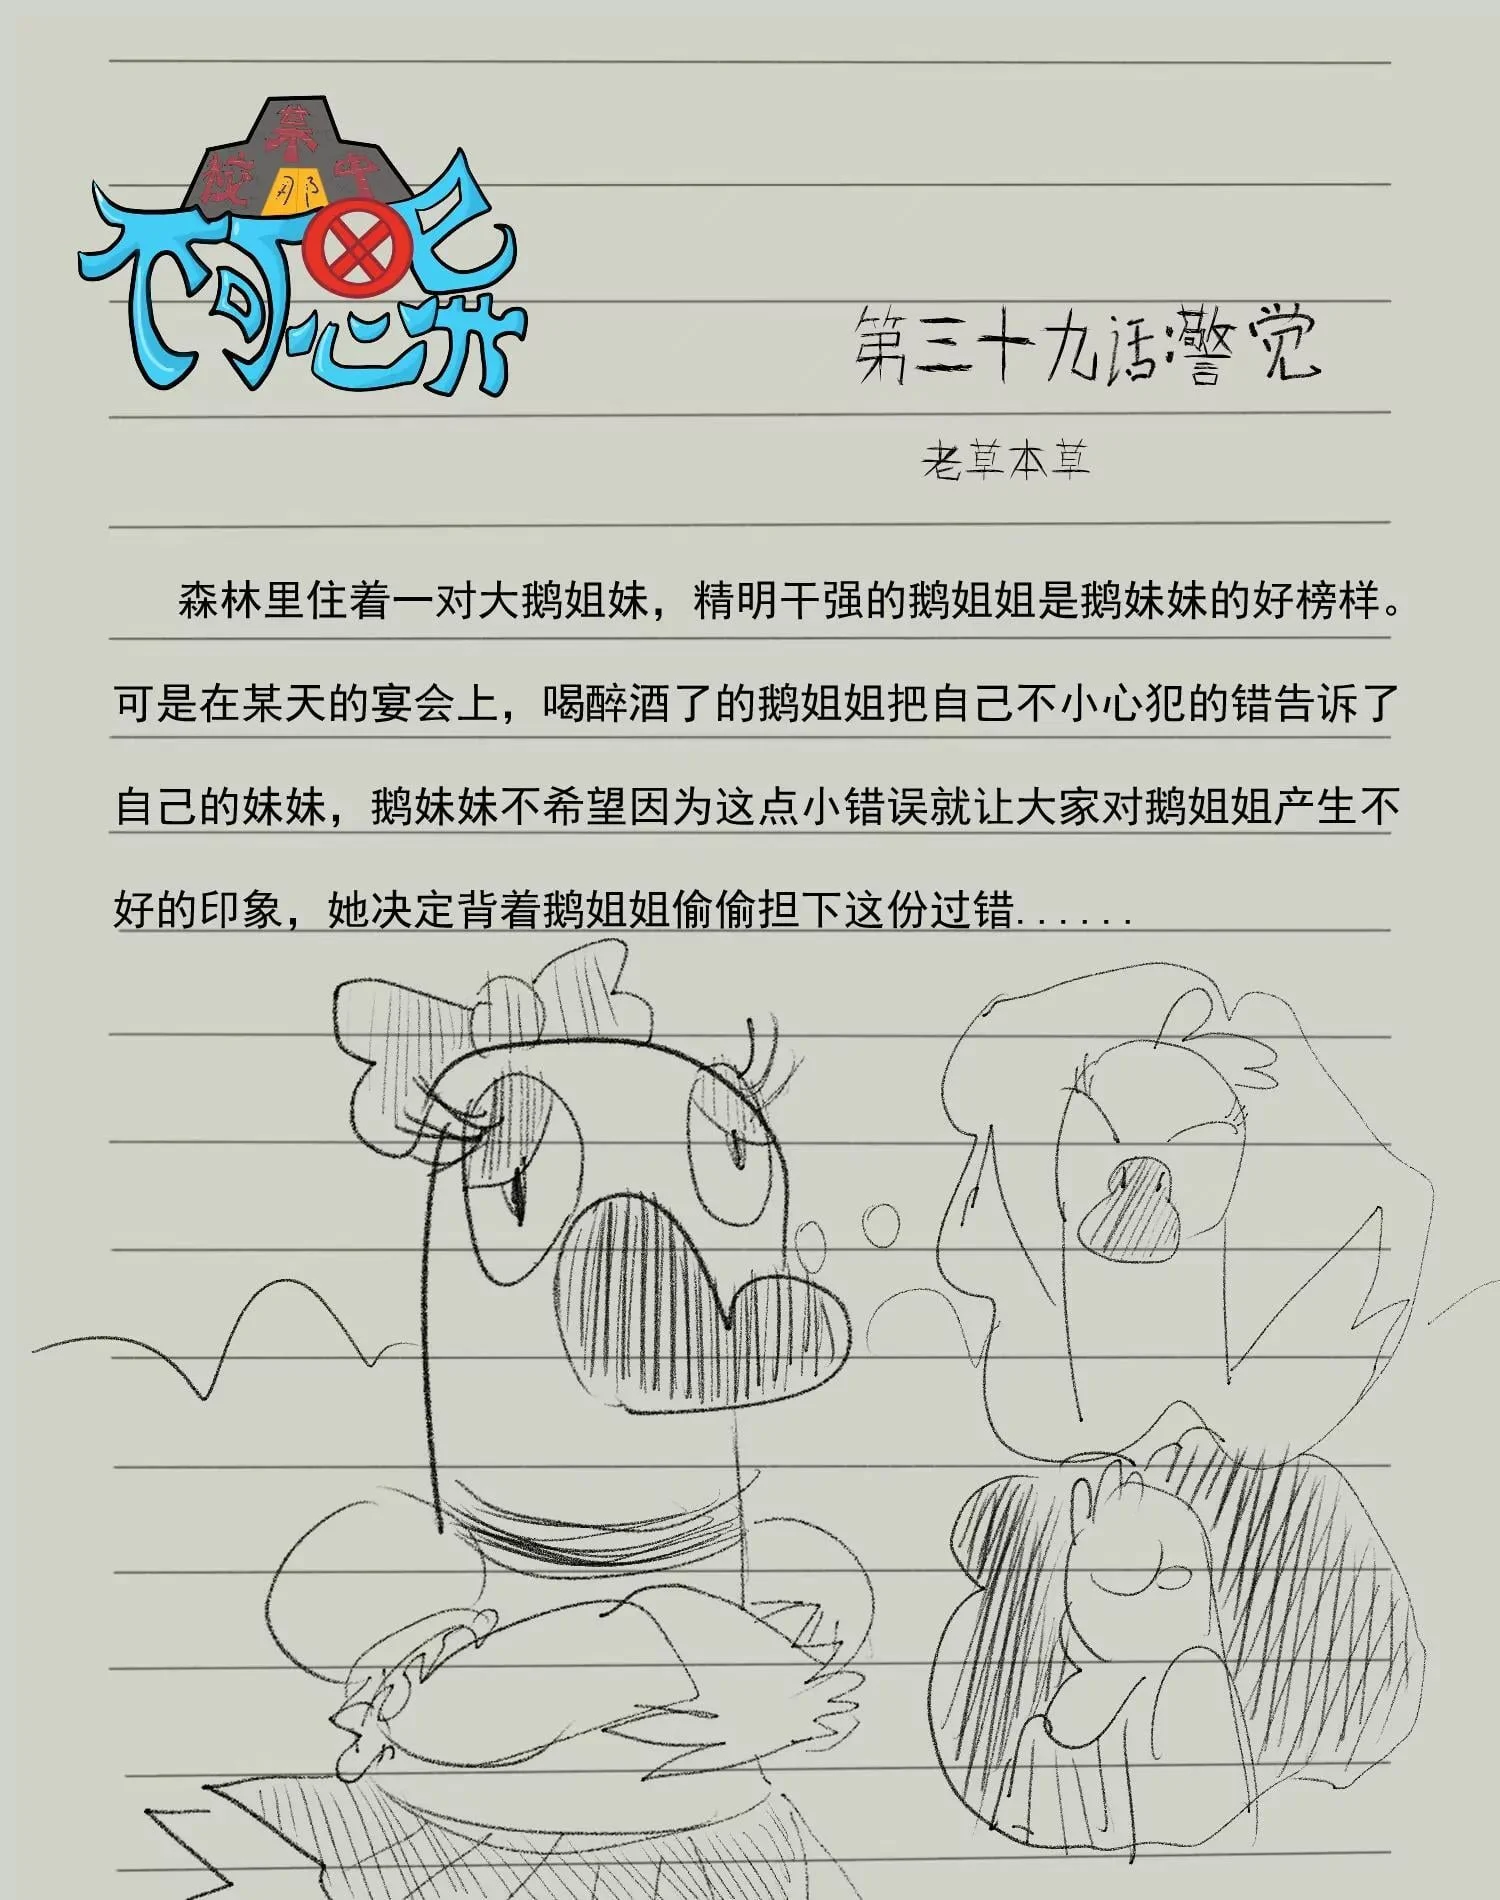 第三十九话:警觉
老草本草
森林里住着一对大鹅姐妹，精明干强的鹅姐姐是鹅妹妹的好榜样。
可是在某天的宴会上，喝醉酒了的鹅姐姐把自己不小心犯的错告诉了
自己的妹妹，鹅妹妹不希望因为这点小错误就让大家对鹅姐姐产生不
好的印象，她决定背着鹅姐姐偷偷担下这份过错......